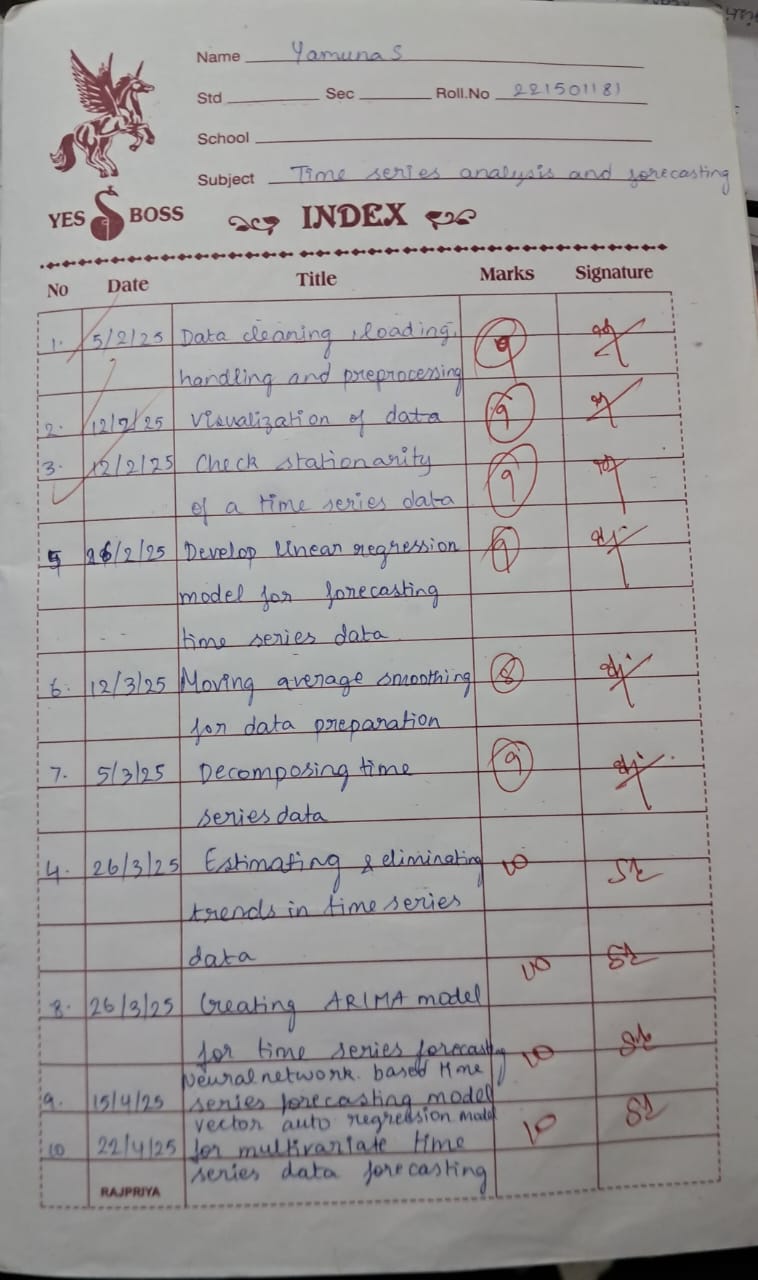 Name Yamuna S
Std Sec Roll.No 221501181
School
Subject Time series analysis and forecasting
YES BOSS
INDEX
No Date Title Marks Signature
1. 5/2/25 Data cleaning, loading, 9
handling and preprocessing
2. 12/2/25 Visualization of data 9
3. 12/2/25 Check stationarity 9
of a time series data
5 26/2/25 Develop linear regression 9
model for forecasting
time series data
6. 12/3/25 Moving average smoothing 8
for data preparation
7. 5/3/25 Decomposing time 9
series data
4. 26/3/25 Estimating & eliminating 10
trends in time series
data
10
8. 26/3/25 Creating ARIMA model
for time series forecasting 10
Neural network based time
9. 15/4/25 series forecasting model
vector auto regression model 10
10 22/4/25 for multivariate time
series data forecasting
RAJPRIYA